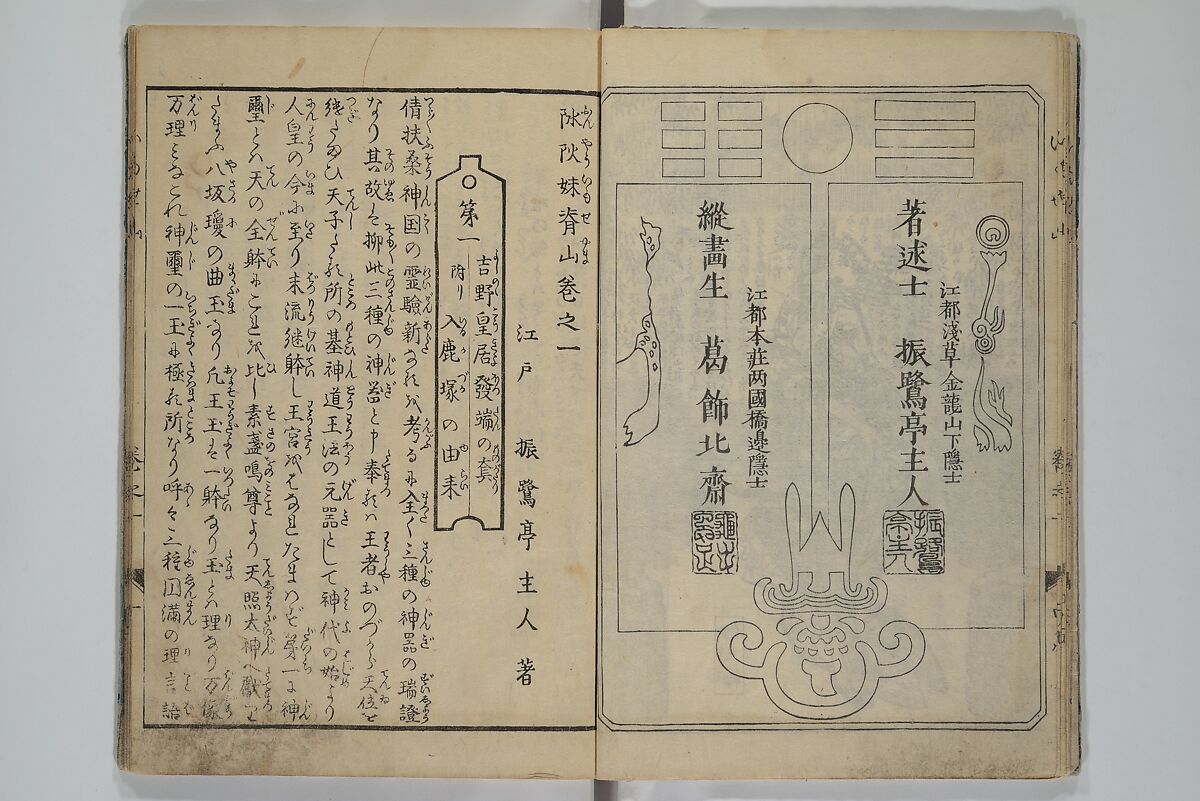 江都淺草金龍山下隠士
著述士 振鷺亭主人
江都本莊両國橋邊隠士
縱畫生 葛飾北齋
阥阦妹脊山巻之一
江戸 振鷺亭主人著
第一
吉野皇居發端の套
附り 入鹿塚の由来
倩扶桑神国の霊驗新なるを考るに全く三種の神器の瑞證
なり其故を抑此三種の神器と申奉るハ王者おのづから天位を
継たまひ天子たる所の基神道王法の元器として神代の始より
人皇の今に至り末流継躰し王宮を
第一に神
璽とハ天の全躰にこれを比し素盞嗚尊より天照太神へ獻り
たまふ八坂瓊の曲玉なり凡王玉を一躰なり玉とハ理なり万像
万理みなこれ神璽の一玉に極る所なり呼々三種囙滿の理言語